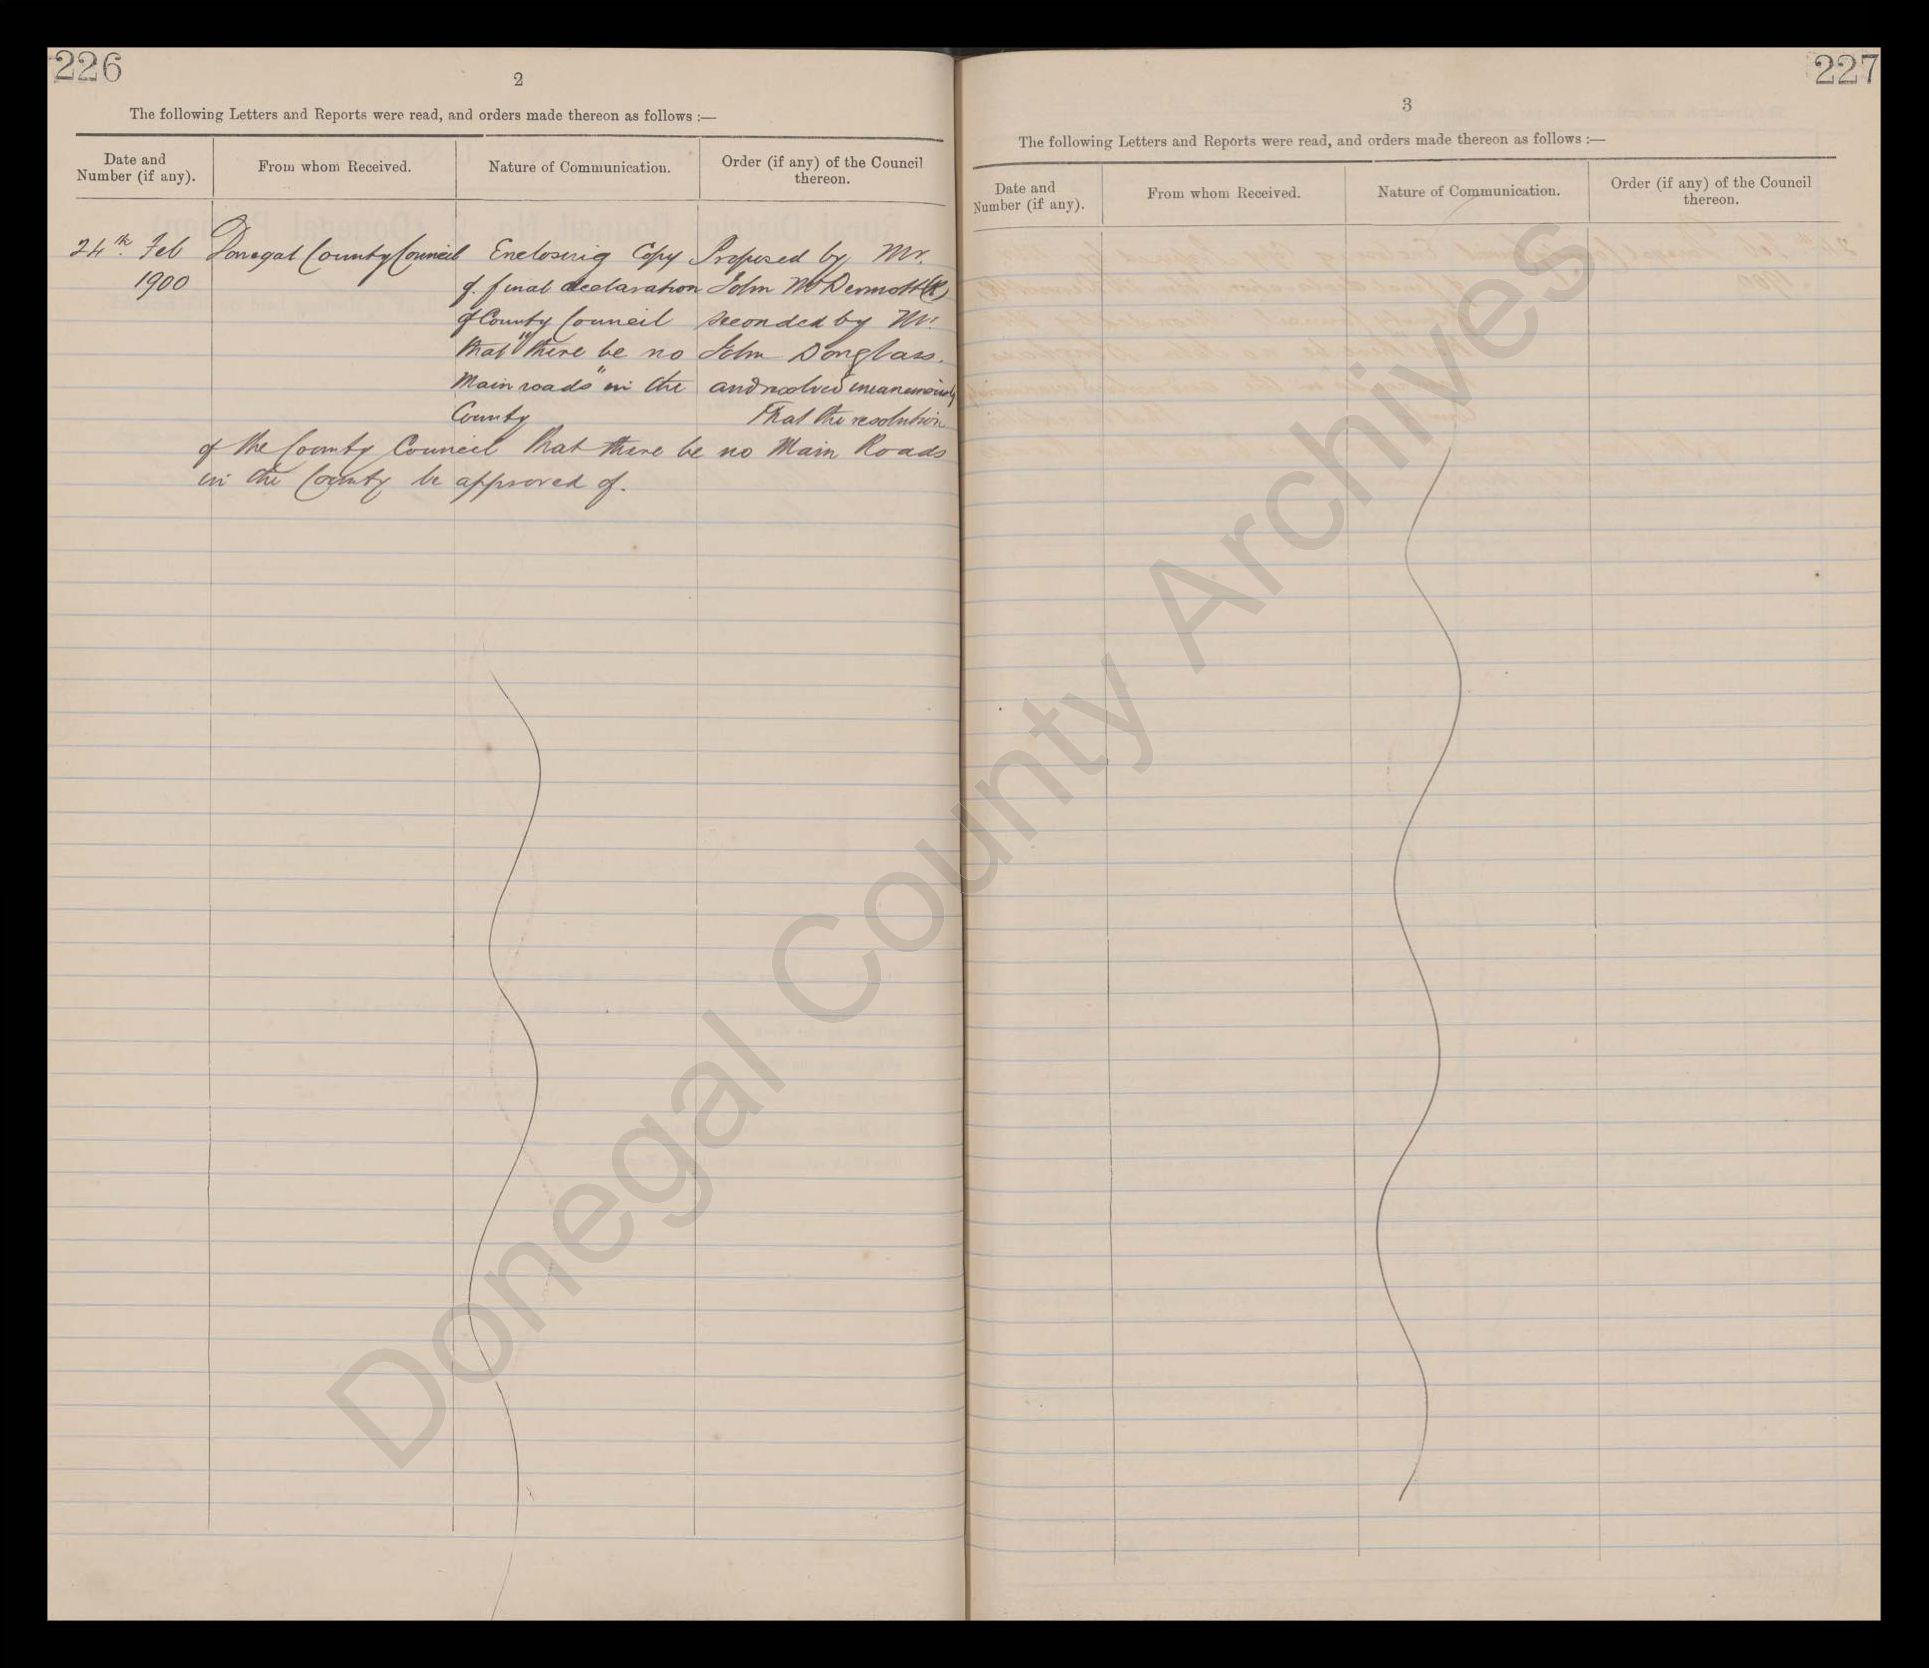 226
2
The following Letters and Reports were read, and orders made thereon as follows :—
Date and Number (if any).
From whom Received.
Nature of Communication.
Order (if any) of the Council thereon.
24th. Feb 1900
Donegal County Council
Enclosing Copy
of final declaration
of County Council
that "there be no
Main roads" in the
County
Proposed by Mr.
John McDermott (R)
seconded by Mr.
John Douglass.
and resolved unanimously
That the resolution
of the County Council that there be no Main Roads
in the County be approved of.
227
3
The following Letters and Reports were read, and orders made thereon as follows :—
Date and Number (if any).
From whom Received.
Nature of Communication.
Order (if any) of the Council thereon.
Donegal County Archives